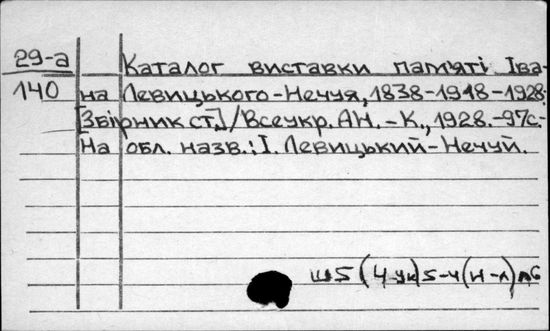 29-а Каталог виставки пам'яті Іва-
140 на Левицького-Нечуя, 1838-1918-1928.
[Збірник ст.]/Всеукр. АН. - К., 1928. - 97с. -
На обл. назв.: І. Левицький-Нечуй.
Ш5(4-ук)5-4(Н-л)л6